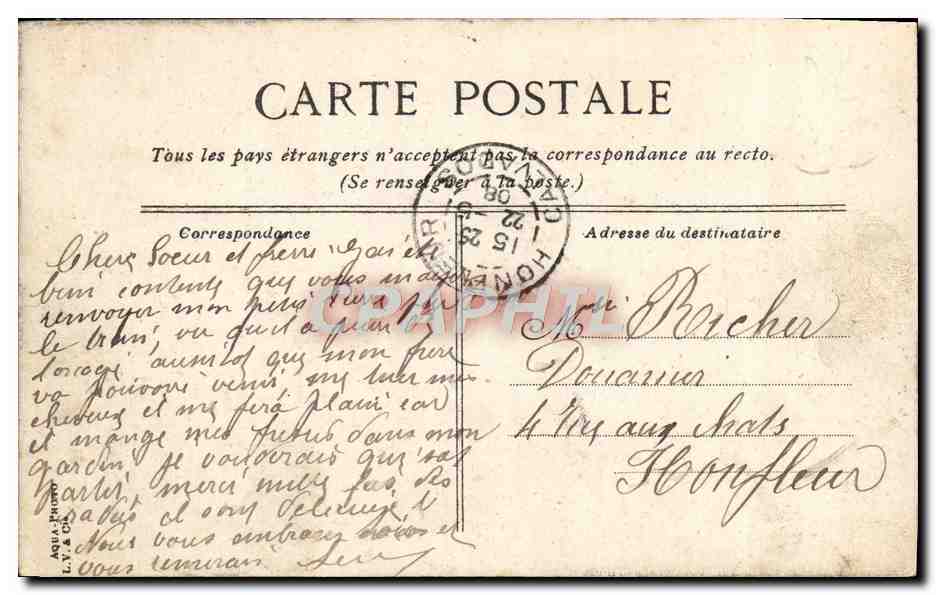 CARTE POSTALE
Tous les pays étrangers n'acceptent pas la correspondance au recto.
(Se renseigner à la poste.)
Correspondance
Adresse du destinataire
HONFLEUR CALVADOS
15 25
22 - 5
08
CPARPHIL
Chers Soeur et frère
bien contents que vous
renvoyer mon petit par
le train, vu qu'il a peur de
l'orage aussitot que mon frère
va pouvoir venir, me tuer mes
cheveux et me fera plaisir car
il mange mes dans mon
jardin je vouderais qu'il soit
parti, merci mille fois des
radis il sont délicieux
Nous vous embrassons et
vous remercient
Mr Richer
Douanier
4 rue aux Chats
Honfleur
AQUA-PHOTO
L.V. & Cie